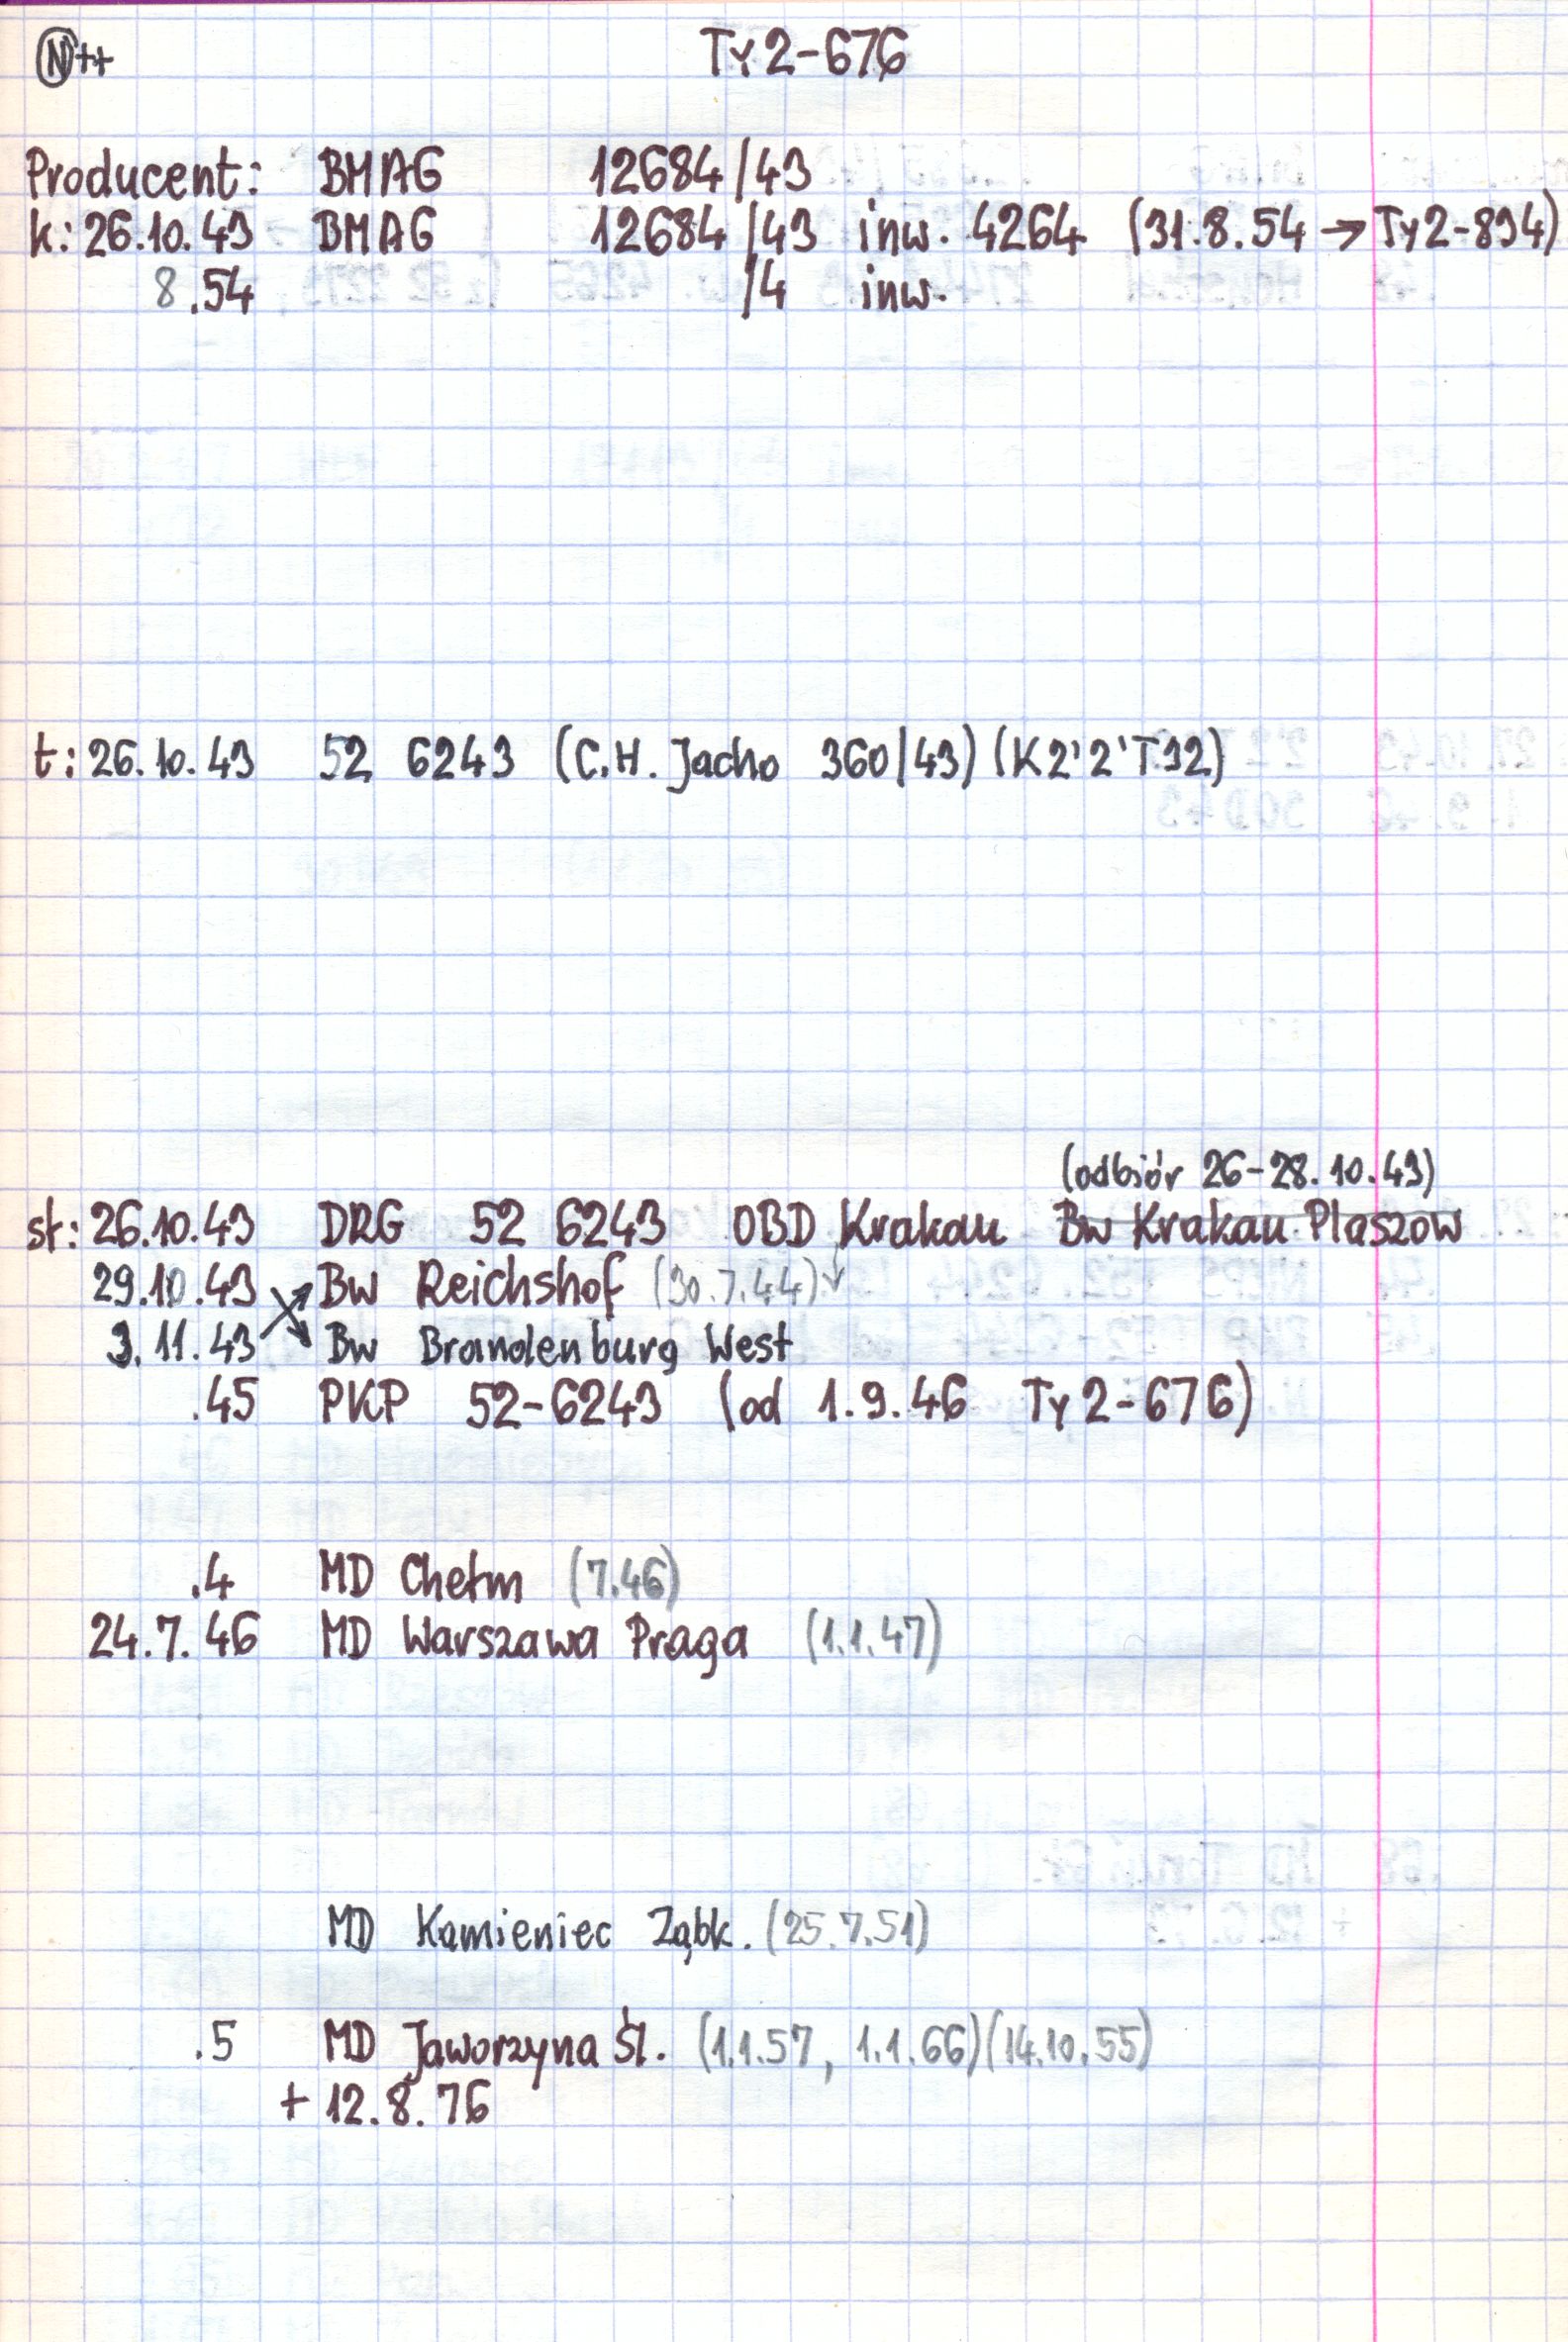 N++ Ty2-676
Producent: BMAG 12684/43
k: 26.10.43 BMAG 12684/43 inw. 4264 (31.8.54 → Ty2-894)
8.54 /4 inw.
t: 26.10.43 52 6243 (C.H. Jacho 360/43) (K2'2'T32)
(odbiór 26-28.10.43)
st: 26.10.43 DRG 52 6243 OBD Krakau Bw Krakau Plaszow
29.10.43 Bw Reichshof (30.7.44)
3.11.43 Bw Brandenburg West
.45 PKP 52-6243 (od 1.9.46 Ty2-676)
.4 MD Chełm (7.46)
24.7.46 MD Warszawa Praga (1.1.47)
MD Kamieniec Ząbk. (25.7.51)
.5 MD Jaworzyna Śl. (1.1.57, 1.1.66) (14.10.55)
+ 12.8.76